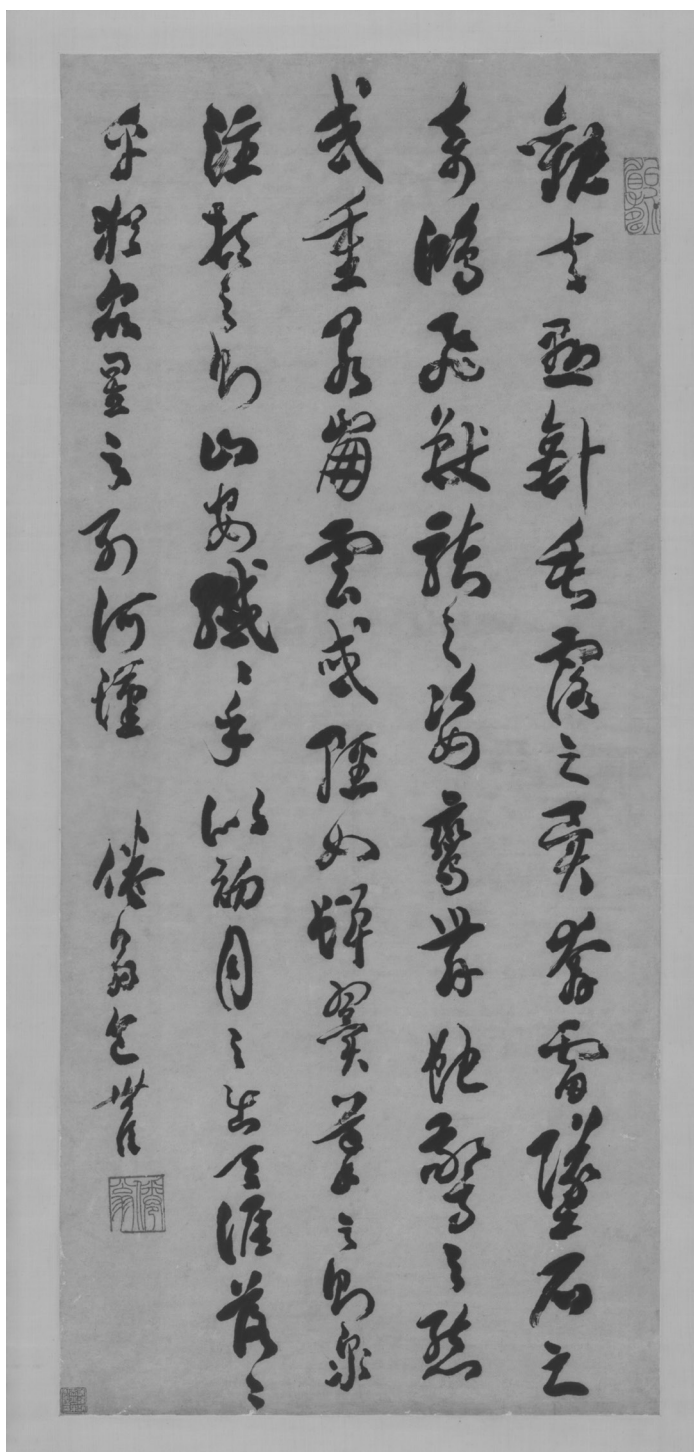 觀夫懸針垂露之異奔雷墜石之
奇鴻飛獸駭之姿鸞舞蛇驚之態
或重若崩雲或輕如蟬翼導之則泉
注頓之則山安纖〻乎似初月之出天涯落〻
乎猶眾星之列河漢 倦翁包世臣